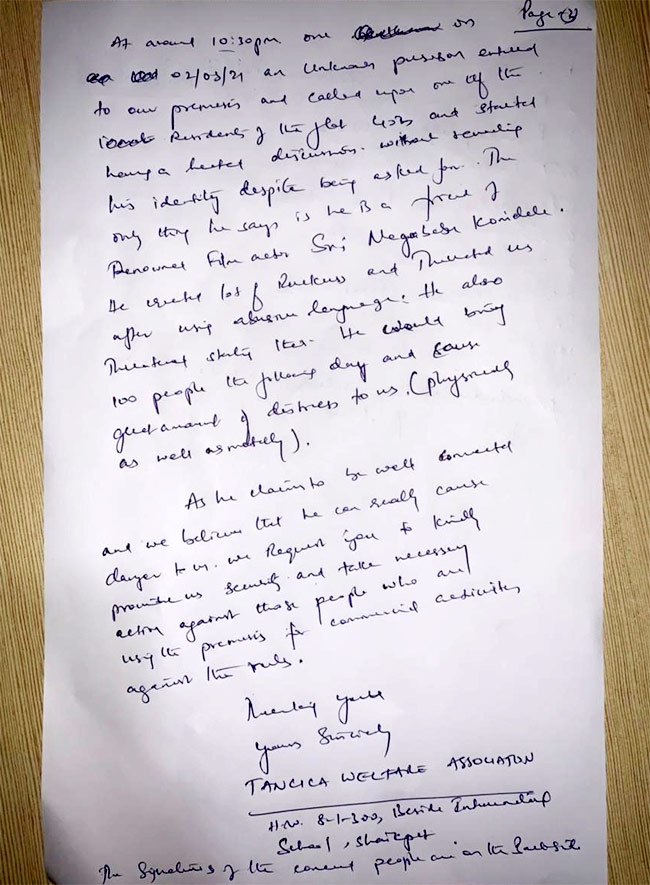 Page - (2)
At around 10:30pm one on
02/03/21 an Unknown person entered
to our premises and called upon one of the
Residents of the flat and started
having a heated discussion without revealing
his identity despite being asked for. The
only thing he says is he is a friend of
Renowned Film actor Sri Nagababu Konidela.
He created lot of Ruckus and Threatened us
after using abusive language. He also
Threatened stating that He would bring
100 people the following day and cause
great amount of distress to us. (physically
as well as mentally).
As he claims to be well connected
and we believe that he can really cause
danger to us. we Request you to kindly
provide us Security and take necessary
action against those people who are
using the premises for commercial activities
against the rules.
Thanking you
yours Sincerely
TANCICA WELFARE ASSOCIATION
H.no. 8-1-300, Beside International
School, Shaikpet
The Signatures of the concerned people are on the backside